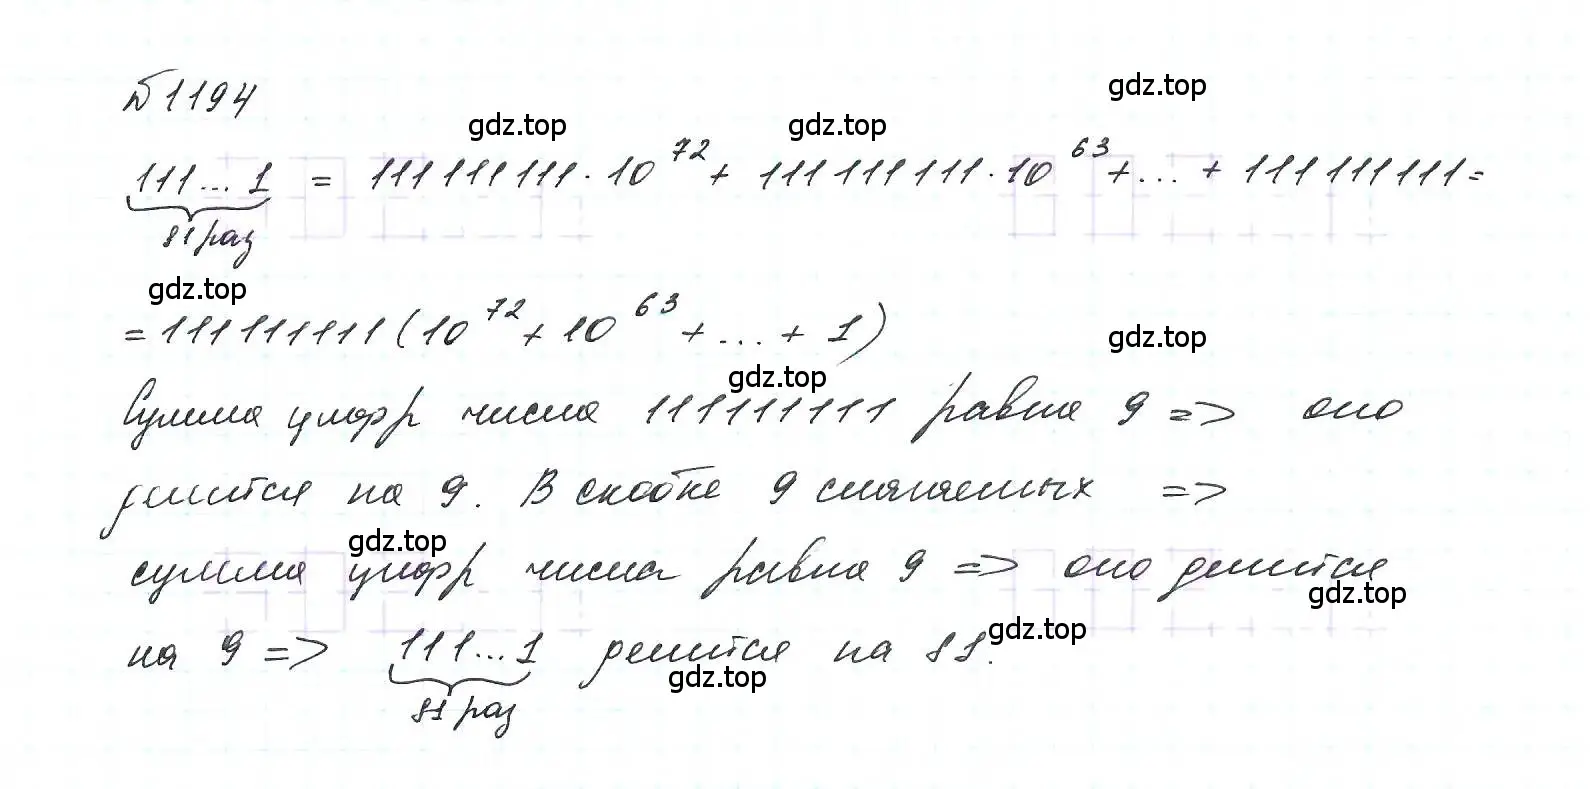 №1194
gdz.top
gdz.top gdz.top
111...1 = 111 111 111 · 10^72 + 111 111 111 · 10^63 + ... + 111 111 111 =
81 раз
gdz.top
= 111 111 111 (10^72 + 10^63 + ... + 1)
gdz.top
gdz.top
Сумма цифр числа 111 111 111 равна 9 => оно
делится на 9. В скобке 9 слагаемых =>
gdz.top
сумма цифр числа равна 9 => оно делится
gdz.top
на 9 => 111...1 делится на 81.
gdz.top
gdz.top
81 раз